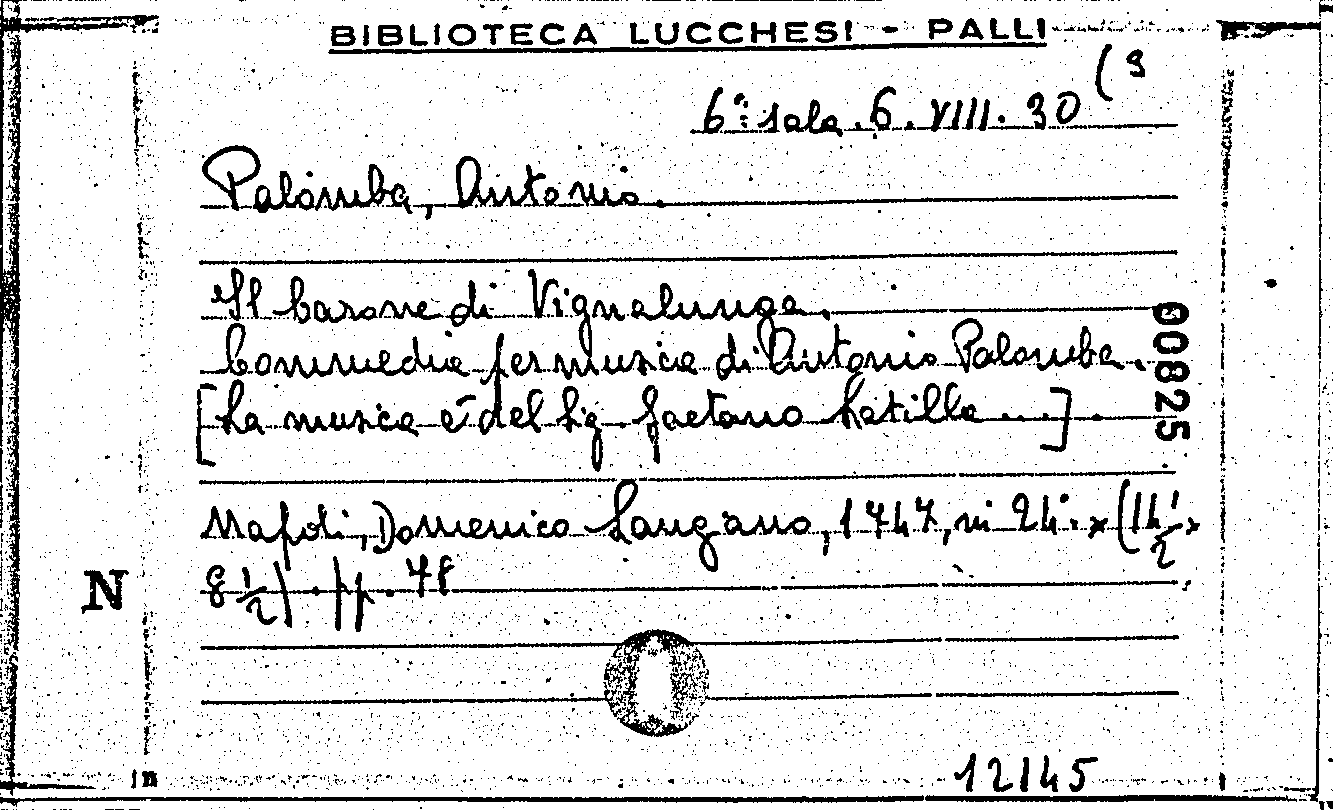 BIBLIOTECA LUCCHESI - PALLI
6ª sala. 6. VIII. 30 (3
Palomba, Antonio.
Il barone di Vignalunga.
Commedia per musica di Antonio Palomba.
[La musica è del Sig. Gaetano Latilla ....].
00825
Napoli, Domenico Langiano, 1747, in 24°. (14 1/2 x
8 1/2). pp. 48
N
in
12145